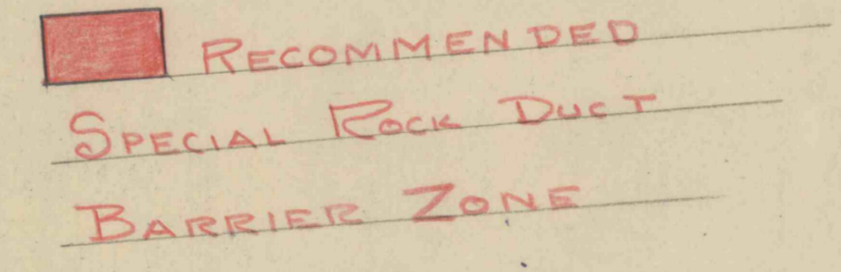 RECOMMENDED
SPECIAL ROCK DUCT
BARRIER ZONE